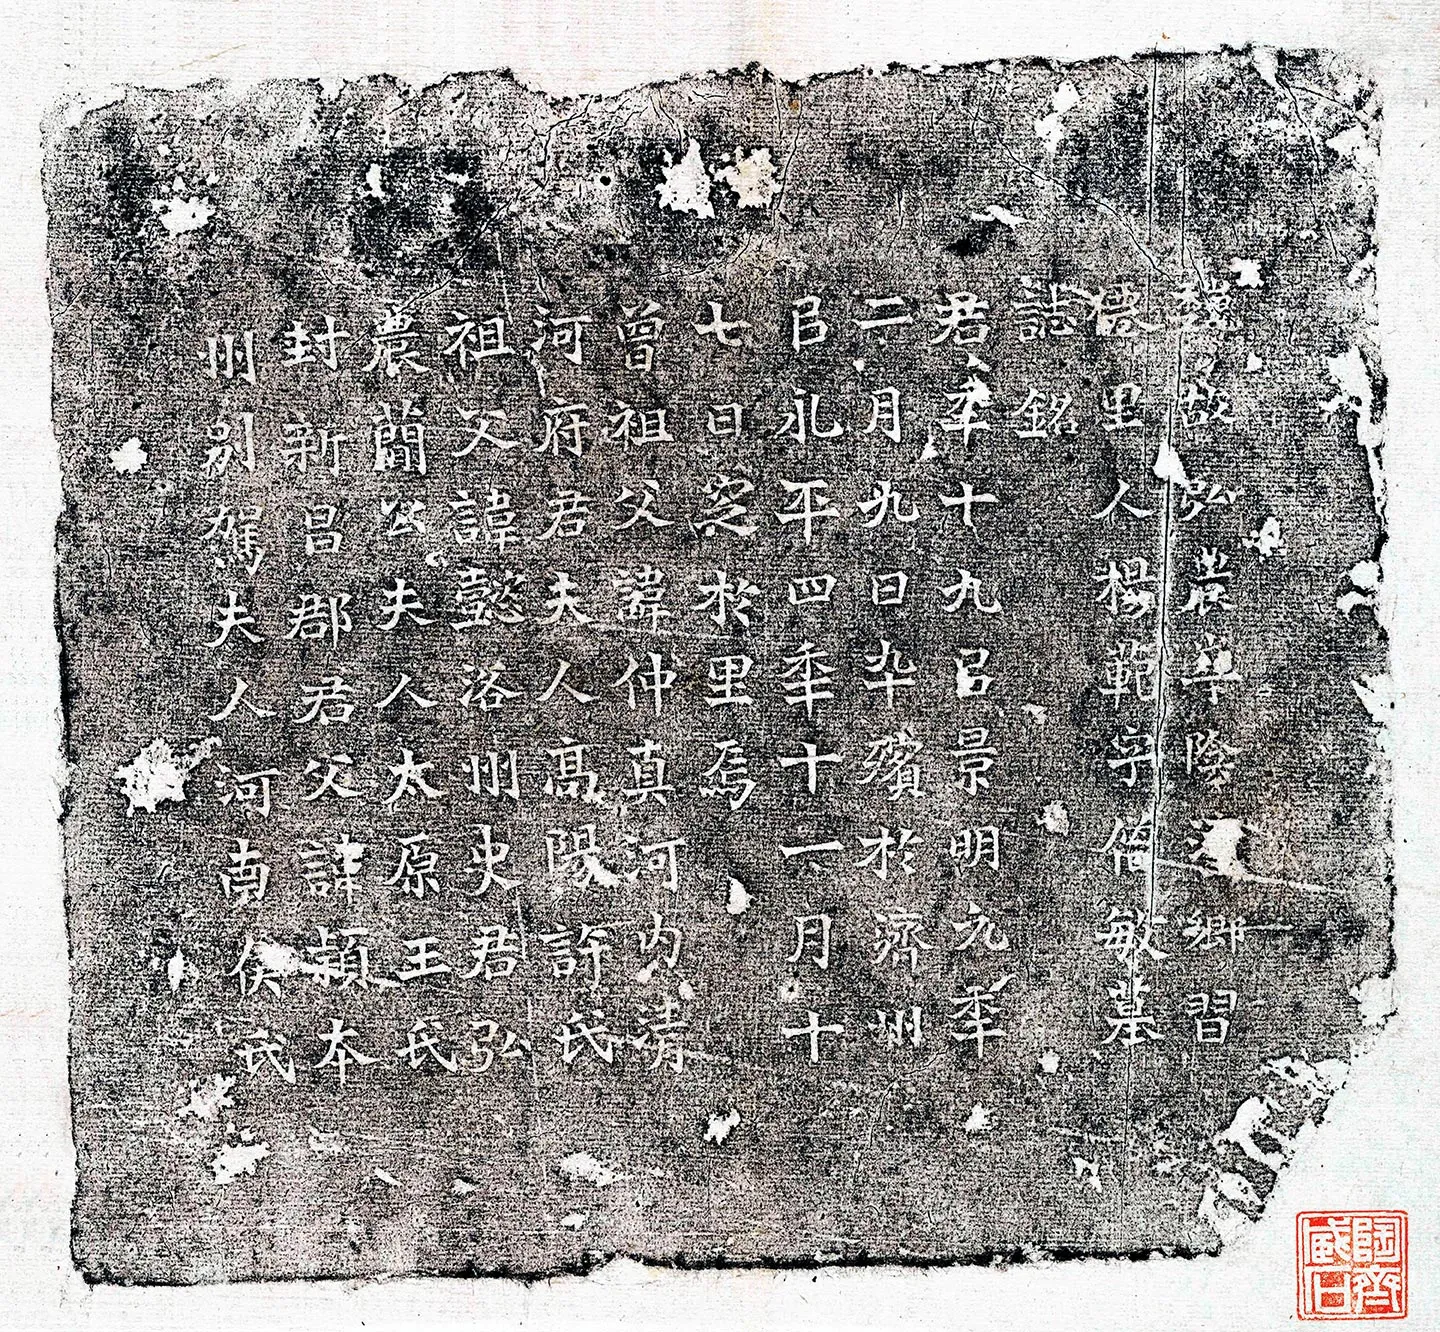 魏故弘農華陰潼鄉習
僊里人楊範字僧敏墓
誌銘
君秊十九㠯景明元秊
二月九日卒殯於濟州
㠯永平四秊十一月十
七日窆於里焉
曾祖父諱仲真河內清
河府君夫人高陽許氏
祖父諱懿洛州史君弘
農蘭公夫人太原王氏
封新昌郡君父諱穎本
州別駕夫人河南侯氏
陶齋